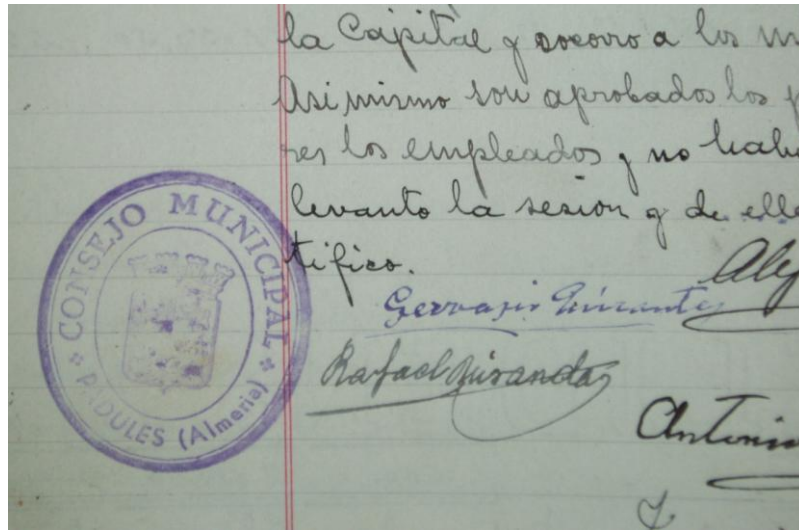 la Capital y socorro a los
Asi mismo son aprobados los
res los empleados y no
levanto la sesion y de
tifico.
Gervasio
Rafael
Antonio
CONSEJO MUNICIPAL
PADULES (Almeria)